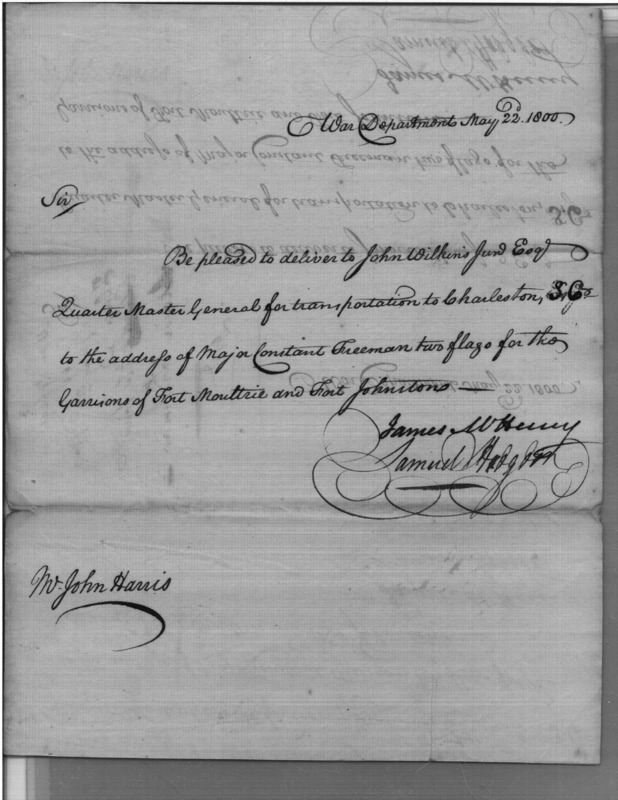 War Department May 22d. 1800.
Sir
Be pleased to deliver to John Wilkins Junr Esqr
Quarter Master General for transportation to Charleston, S Ca
to the address of Major Constant Freeman two flags for the
Garrisons of Fort Moultrie and Fort Johnston
James McHenry
Samuel Hodgdon
Mr John Harris